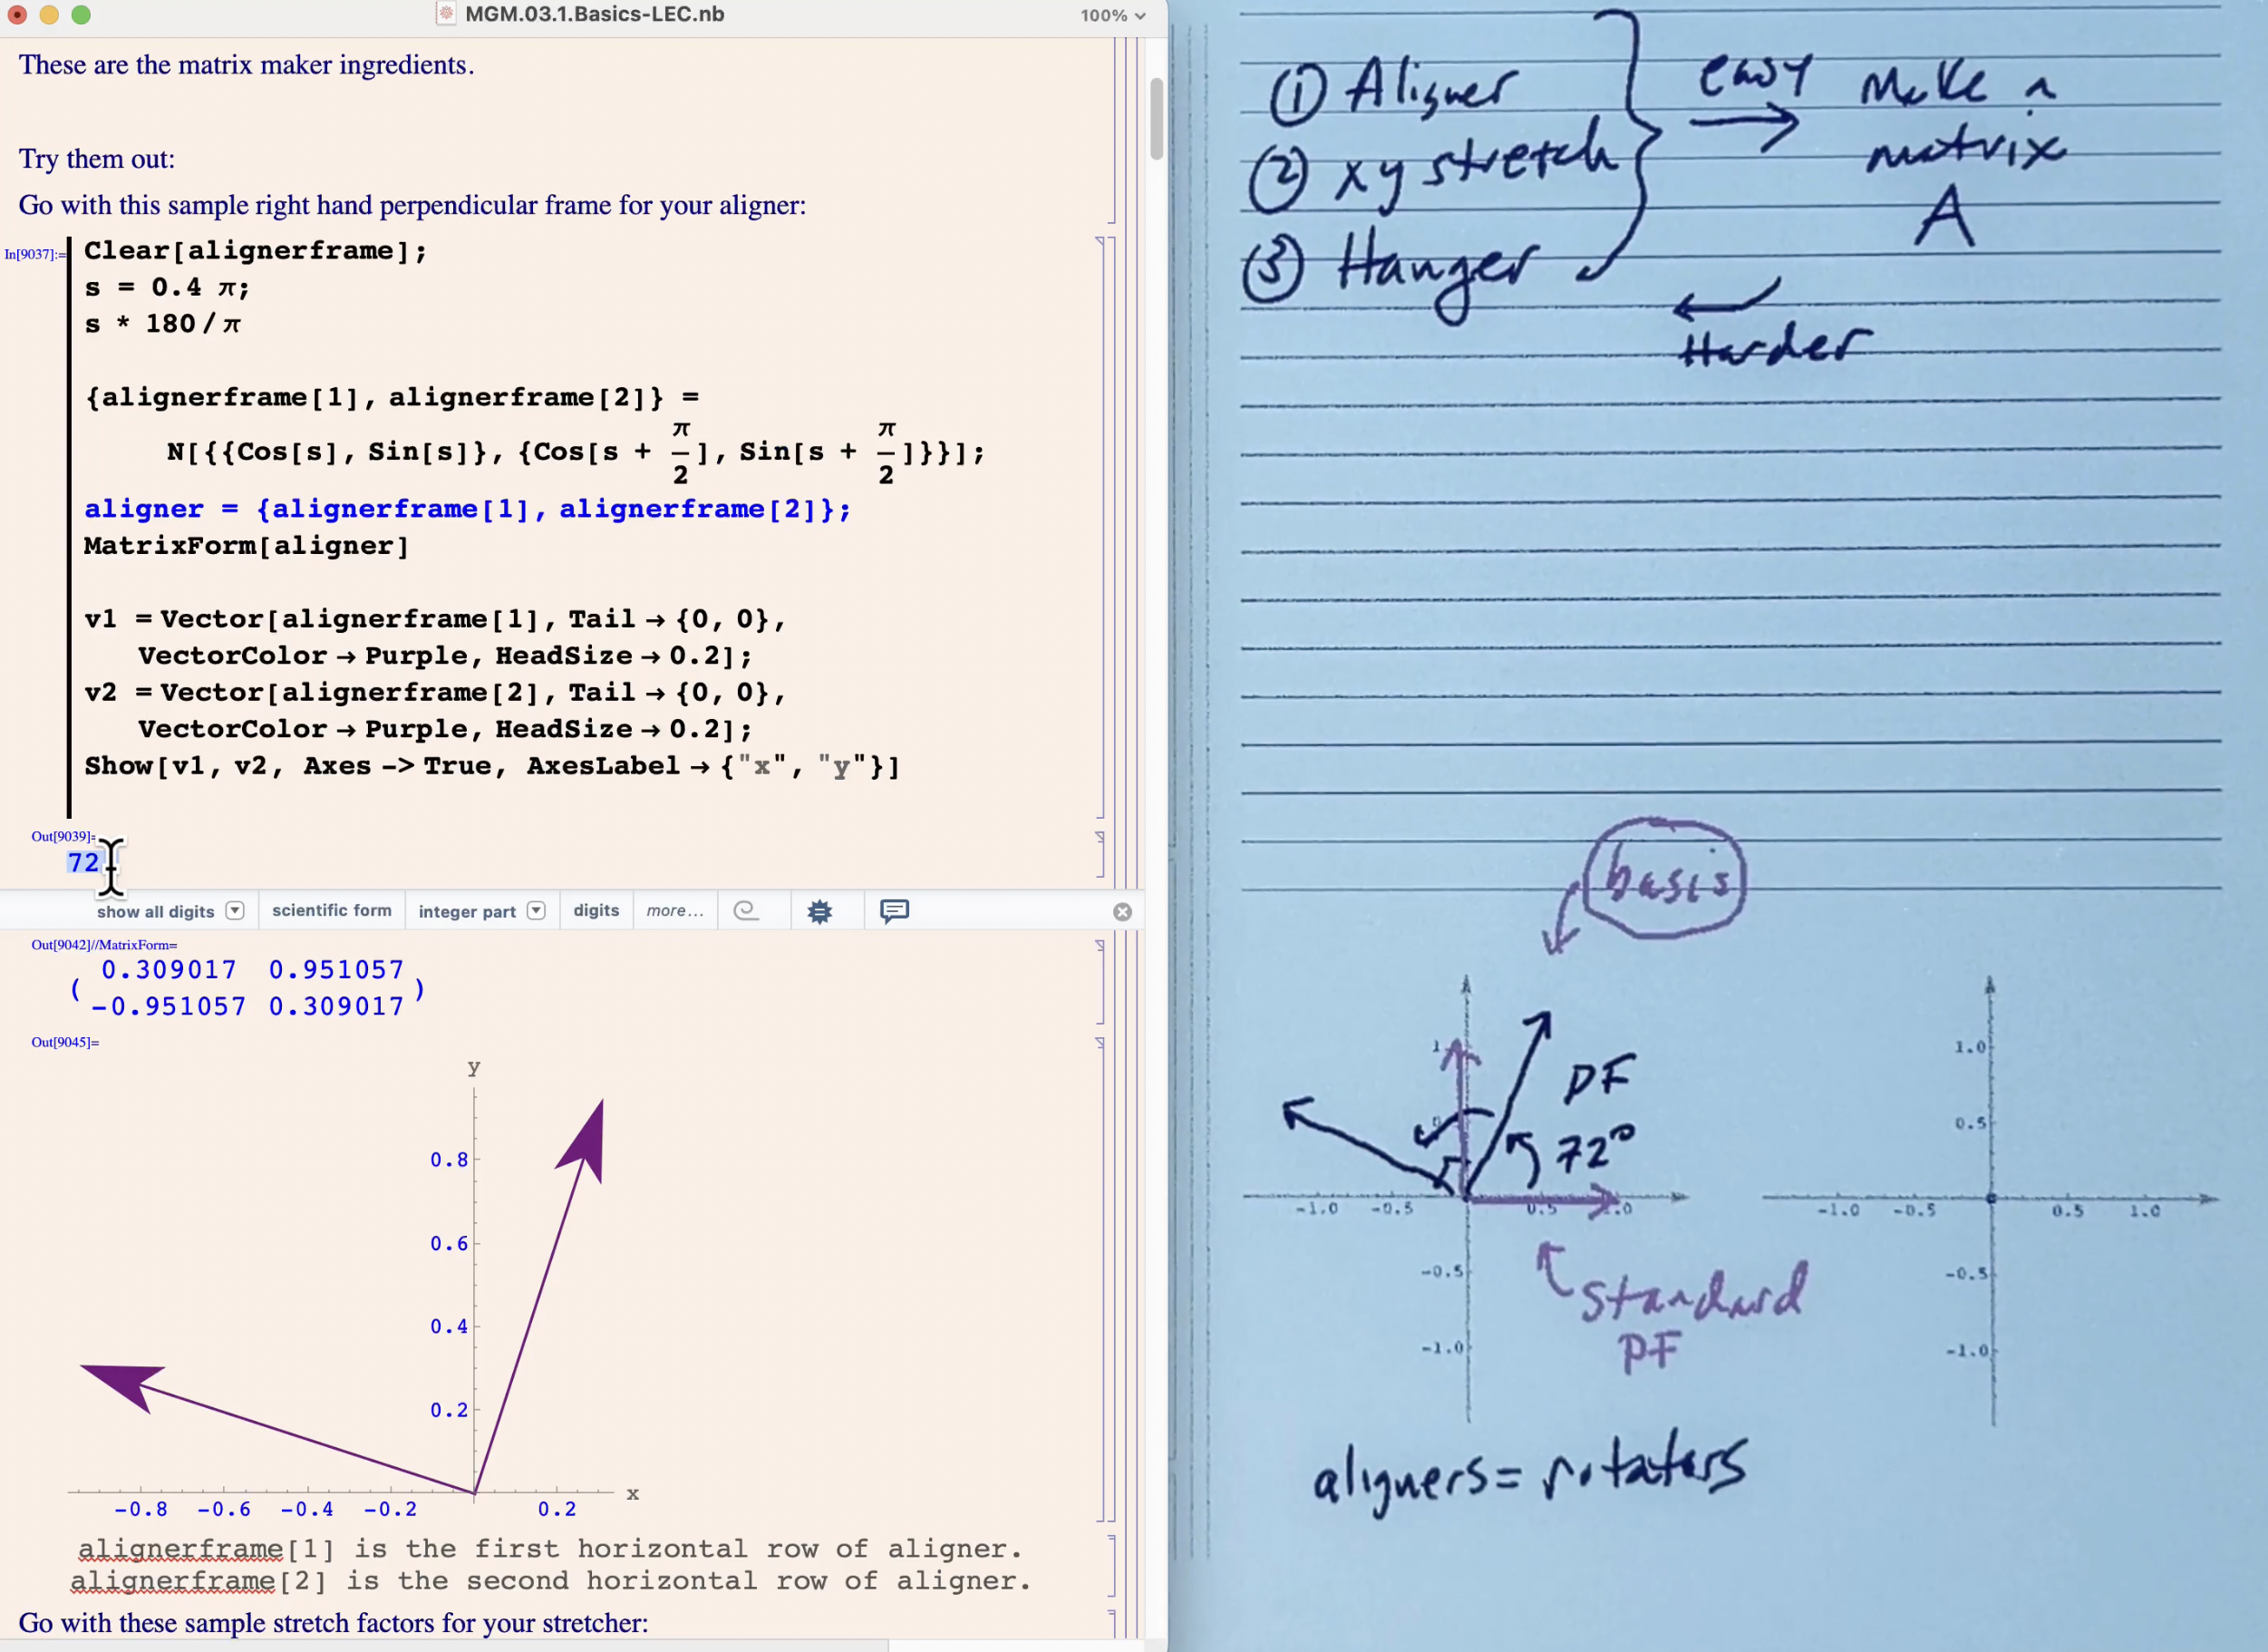 MGM.03.1.Basics-LEC.nb
100%
These are the matrix maker ingredients.
Try them out:
Go with this sample right hand perpendicular frame for your aligner:
In[9037]:=
Clear[alignerframe];
s = 0.4 π;
s * 180 / π
{alignerframe[1], alignerframe[2]} =
N[{{Cos[s], Sin[s]}, {Cos[s + π/2], Sin[s + π/2]}}];
aligner = {alignerframe[1], alignerframe[2]};
MatrixForm[aligner]
v1 = Vector[alignerframe[1], Tail → {0, 0},
VectorColor → Purple, HeadSize → 0.2];
v2 = Vector[alignerframe[2], Tail → {0, 0},
VectorColor → Purple, HeadSize → 0.2];
Show[v1, v2, Axes -> True, AxesLabel → {"x", "y"}]
Out[9039]=
72.
show all digits scientific form integer part digits more...
Out[9042]//MatrixForm=
( 0.309017 0.951057
-0.951057 0.309017 )
Out[9045]=
y
0.8
0.6
0.4
0.2
x
-0.8 -0.6 -0.4 -0.2 0.2
alignerframe[1] is the first horizontal row of aligner.
alignerframe[2] is the second horizontal row of aligner.
Go with these sample stretch factors for your stretcher:
① Aligner
② xy stretch
③ Hanger
easy
Make a
matrix
A
Harder
basis
PF
72°
1
-1.0 -0.5 0.5 1.0
-0.5
-1.0
Standard
PF
1.0
0.5
-1.0 -0.5 0.5 1.0
-0.5
-1.0
aligners = rotaters